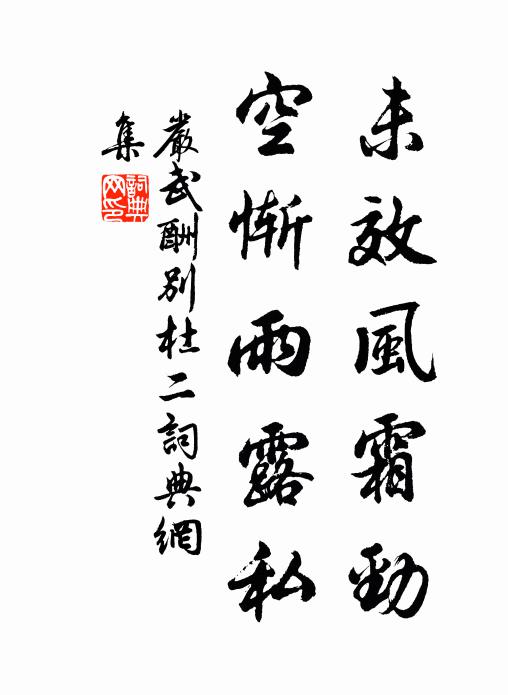 未效風霜勁
空慚雨露私
嚴武酬別杜二詞典網
集
詞典网印